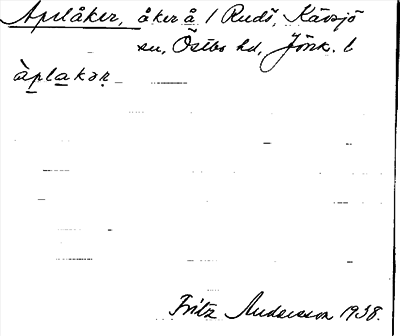 Aplåker, åker å 1 Rudö, Kävsjö
sn, Östbo hd, Jönk. l
àplakər
Fritz Andersson 1938.